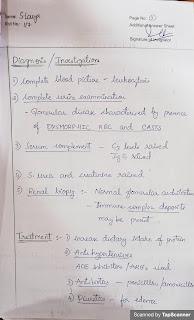 Name: Stays
Roll No: 117
Page No:
Additional Answer Sheet
Signature of Invigilator
Diagnosis / Investigation
1) Complete blood picture - leukocytosis
2) Complete urine examination
- Glomerular disease characterised by presence
of DYSMORPHIC RBC and CASTS
3) Serum complement - C3 levels raised
4) S. urea and creatinine raised
5) Renal biopsy :- Normal glomerular architecture
- Immune complex deposits
may be present
Treatment :- 1) Increase dietary intake of protein
2) Antihypertensives
ACE inhibitors / ARB's used
3) Antibiotics - penicillins / amoxicillin
4) Diuretics - for edema
Scanned by TapScanner